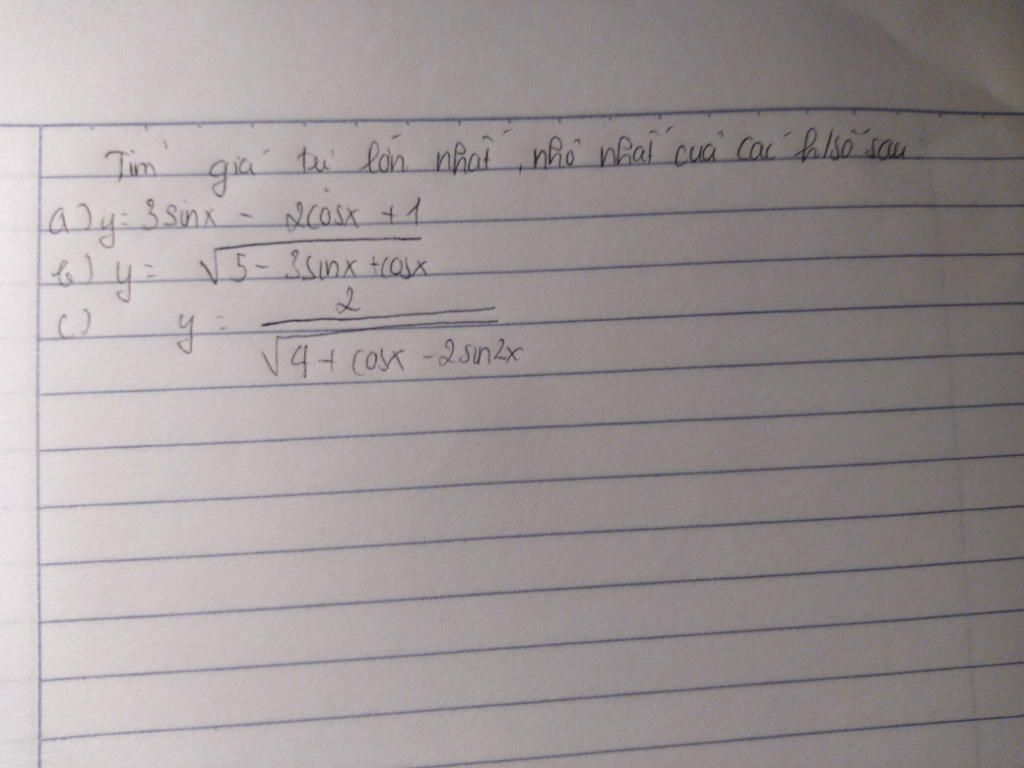 Tìm giá trị lớn nhất, nhỏ nhất của các h/số sau:
a) y = 3sinx - 2cosx + 1
b) y = √5 - 3sinx + cosx
c) y = 2
√4 + cosx - 2sin2x